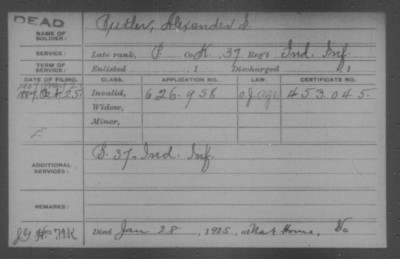 DEAD
NAME OF SOLDIER: Butler, Alexander S.
SERVICE: Late rank, P Co. K, 37 Reg't Ind. Inf.
TERM OF SERVICE: Enlisted , 1 Discharged , 1
DATE OF FILING. CLASS. APPLICATION NO. LAW. CERTIFICATE NO.
Oct 25 Invalid, 626.958 453.045.
Widow,
Minor,
ADDITIONAL SERVICES: S. 37. Ind. Inf.
REMARKS:
Died Jan 28, 1925, at Nat Home, Va